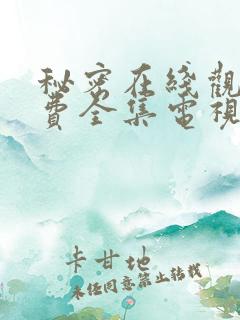 秘密在綫觀
費全集電視
卡甘地
未經同意禁止轉載